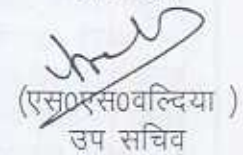 (एस०एस०वल्दिया )
उप सचिव